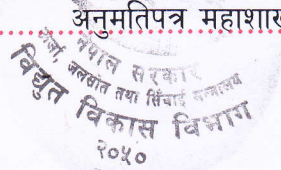 अनुमतिपत्र महाशाख
नेपाल सरकार
ऊर्जा, जलस्रोत तथा सिंचाई मन्त्रालय
विद्युत विकास विभाग
२०५०